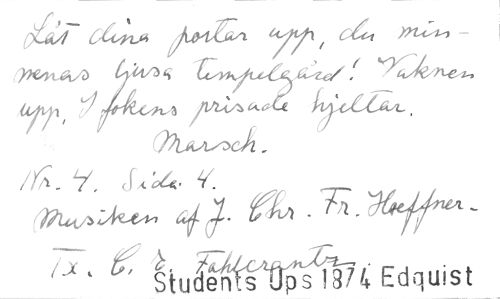 Låt dina portar upp, du min-
nenas ljusa tempelgård! Vaknen
upp, I fokens prisade hjeltar.
Marsch.
Nr. 4. Sida 4.
Musiken af J. Chr. Fr. Hæffner-
Tx. C. E. Fahlcrantz
Students Ups 1874 Edquist